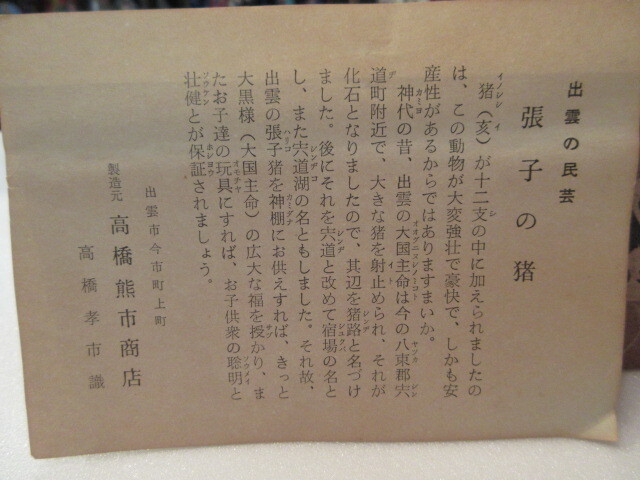 出雲の民芸
張子の猪
猪(亥)が十二支の中に加えられましたの
は、この動物が大変強壮で豪快で、しかも安
産性があるからではありますまいか。
神代の昔、出雲の大国主命は今の八束郡宍
道町附近で、大きな猪を射止められ、それが
化石となりましたので、其辺を猪路と名づけ
ました。後にそれを宍道と改めて宿場の名と
し、また宍道湖の名ともしました。それ故、
出雲の張子猪を神棚にお供えすれば、きっと
大黒様(大国主命)の広大な福を授かり、ま
たお子達の玩具にすれば、お子供衆の聡明と
壮健とが保証されましょう。
出雲市今市町上町
製造元 高橋熊市商店
高橋孝市識